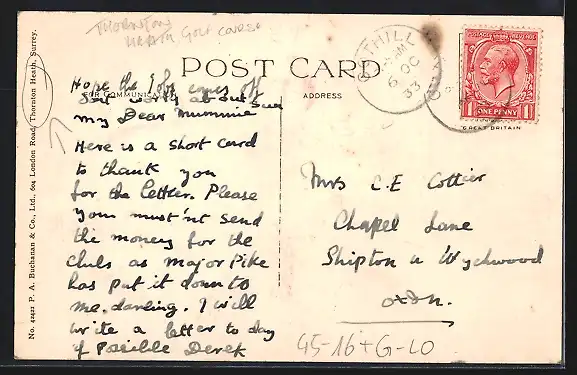 THORNTON
HEATH Golf COURSE
POST CARD
FOR COMMUNICATION
ADDRESS
Hope the job comes off
Dont worry about Sued
My Dear Mummie
Here is a short card
to thank you
for the letter. Please
you must'nt send
the money for the
clubs as major Pike
has put it down to
me. darling. I will
write a letter to day
if Possible Derek
Mrs C.E Cottier
Chapel Lane
Shipton u Wychwood
oxon.
45-16+G-LO
6 OC
33
POSTAGE REVENUE
1 ONE PENNY 1
GREAT BRITAIN
No. 42421 P. A. Buchanan & Co., Ltd., 604 London Road, Thornton Heath, Surrey.